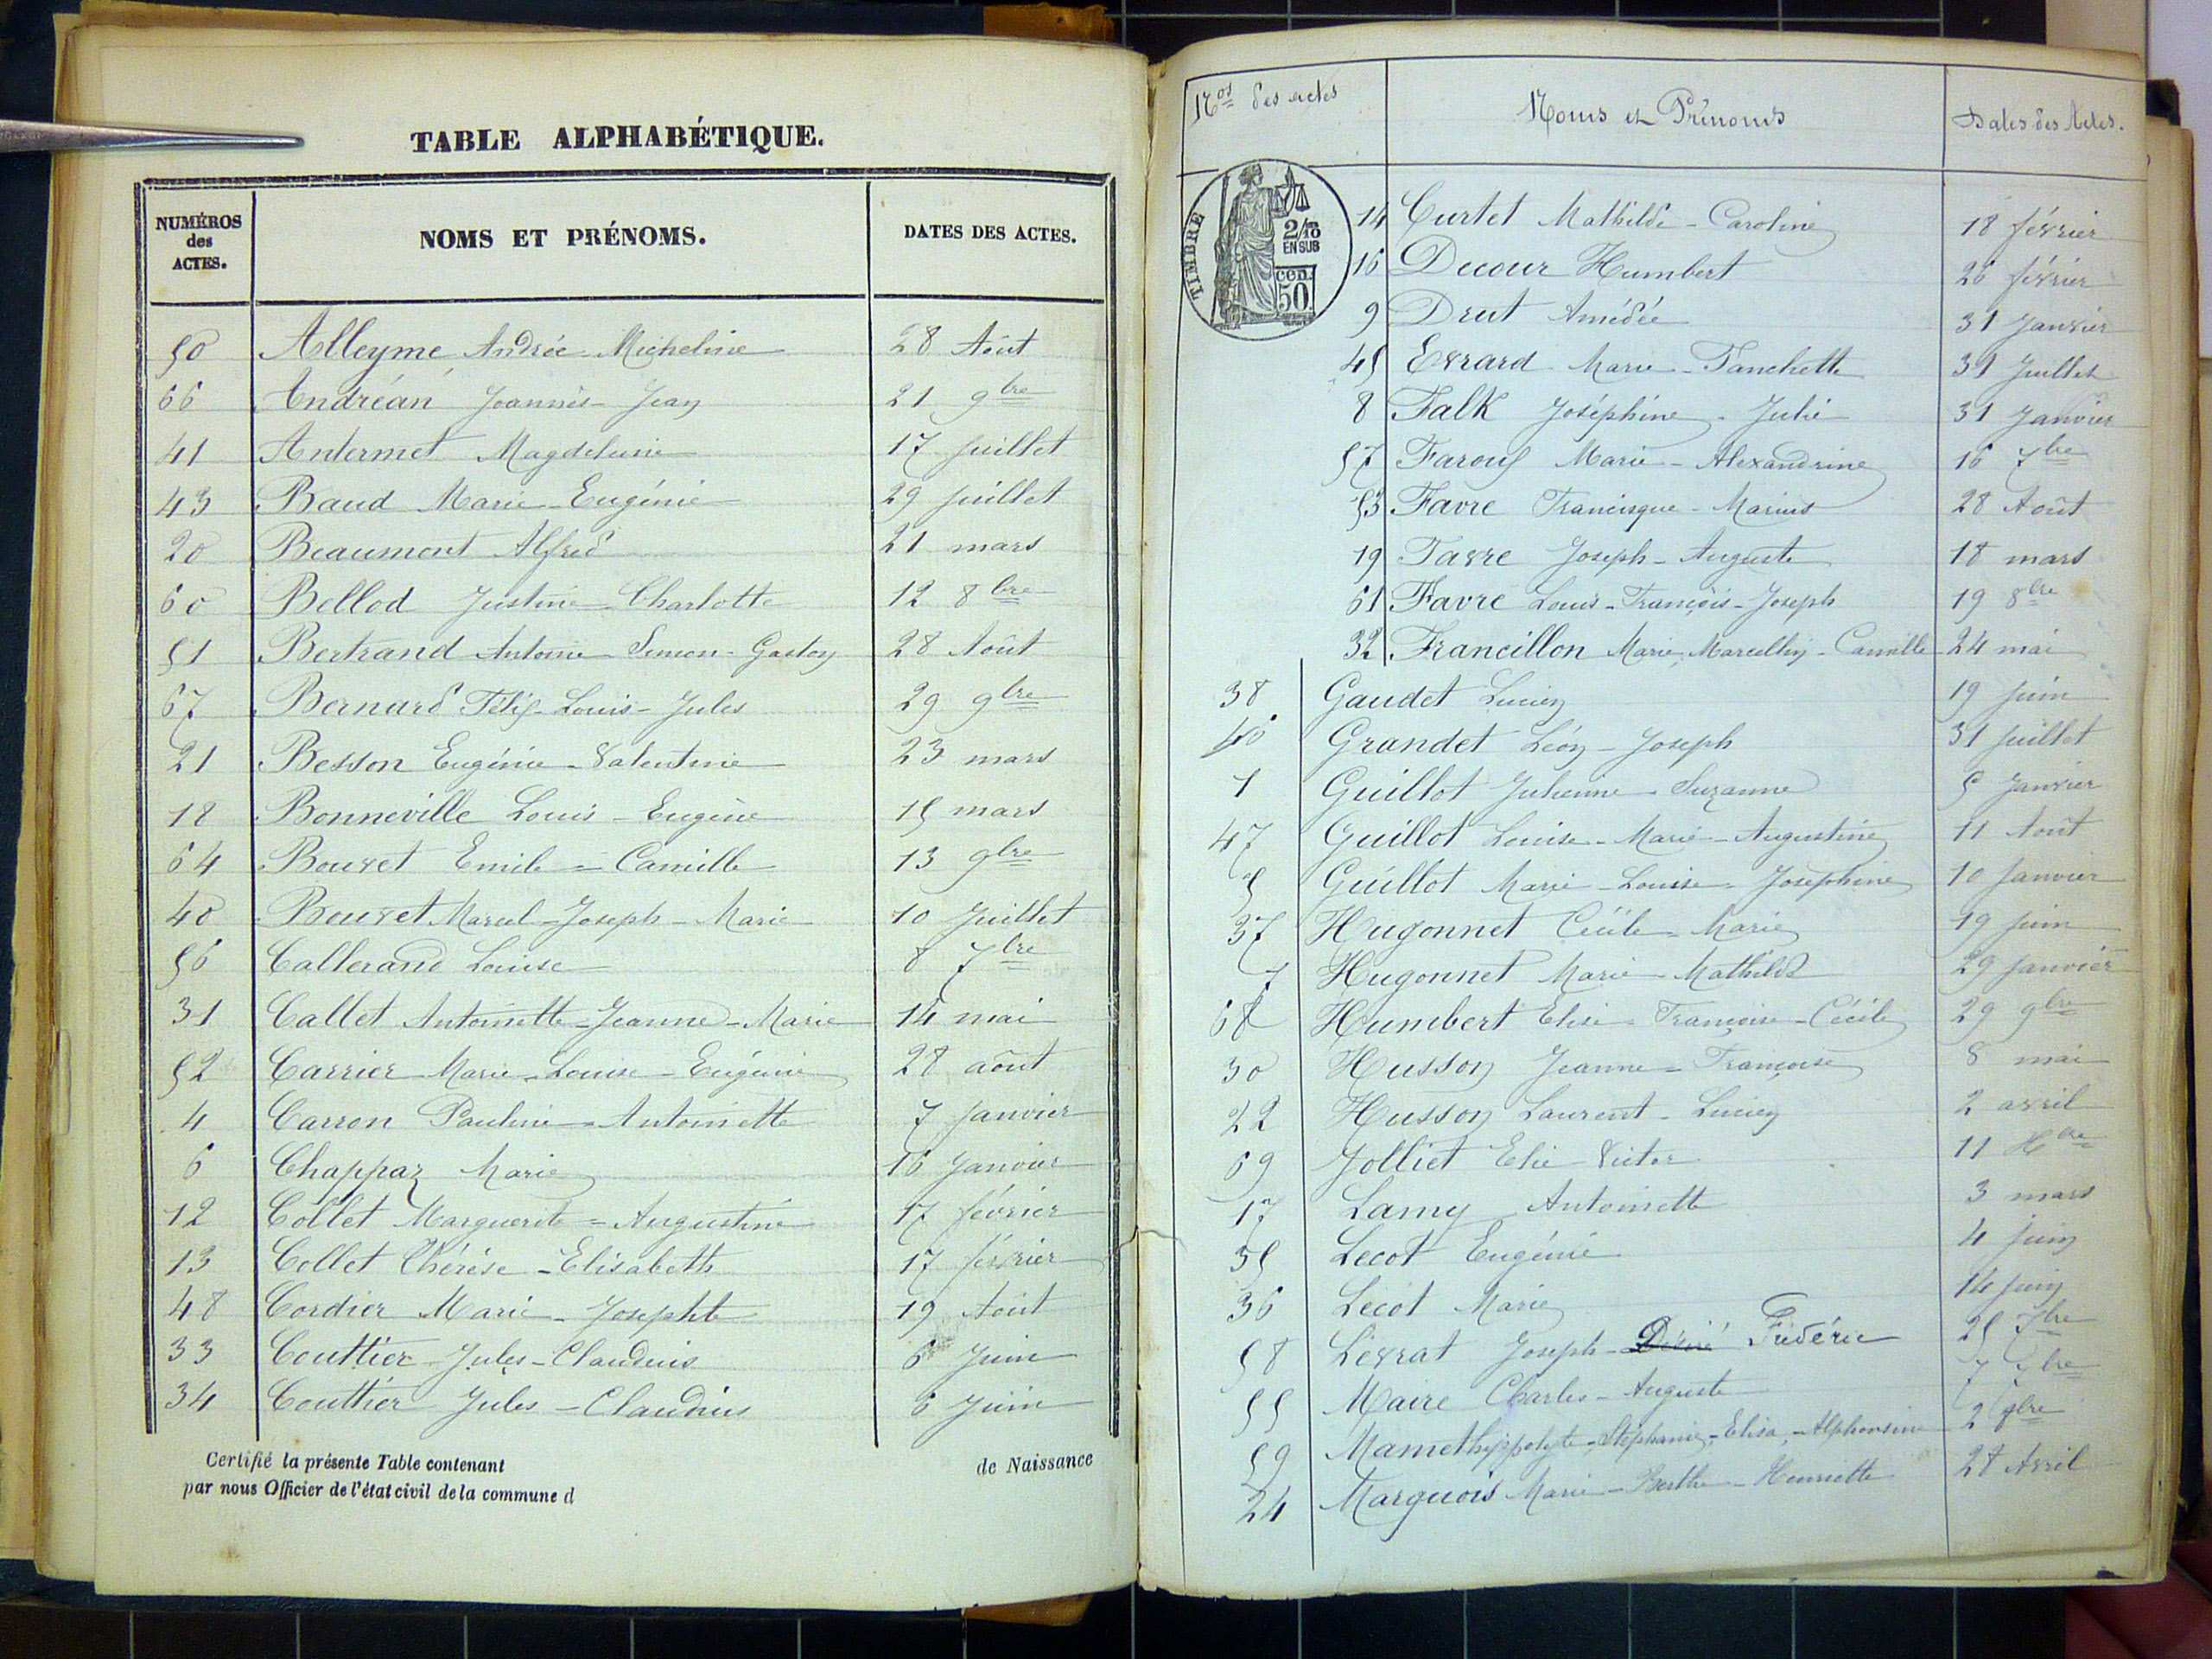 TABLE ALPHABÉTIQUE.
NUMÉROS des ACTES. NOMS ET PRÉNOMS. DATES DES ACTES.
50 Alleyme Andrée Micheline 28 Août
66 Andréan Joannès-Jean 21 9bre
41 Antermet Magdeleine 17 juillet
43 Baud Marie-Eugénie 29 juillet
20 Beaumont Alfred 21 mars
60 Bellod Justine-Charlotte 12 8bre
51 Bertrand Antoine-Simon-Gaston 28 Août
67 Bernard Félix-Louis-Jules 29 9bre
21 Besson Eugénie-Valentine 23 mars
18 Bonneville Louis-Eugène 15 mars
64 Bouvet Emile=Camille 13 9bre
40 Bouvet Marcel-Joseph-Marie 10 Juillet
56 Callerand Louise 8 7bre
31 Callet Antoinette-Jeanne-Marie 14 mai
52 Carrier Marie-Louise-Eugénie 28 août
4 Carron Pauline=Antoinette 7 Janvier
6 Chappaz Marie 16 Janvier
12 Collet Marguerite=Augustine 17 février
13 Collet Thérèse-Elisabeth 17 février
48 Cordier Marie-Josephte 19 Août
33 Couttier Jules-Claudius 6 Juin
34 Couttier Jules-Claudius 6 Juin
Certifié la présente Table contenant de Naissance
par nous Officier de l'état civil de la commune d
Nos des actes Noms et Prénoms Dates des Actes.
TIMBRE 2/10 EN SUS cen. 50.
14 Curtet Mathilde-Caroline 18 février
16 Decour Humbert 26 février
9 Drut Amédée 31 Janvier
45 Evrard Marie-Fanchette 31 Juillet
8 Falk Joséphine-Julie 31 Janvier
57 Faroux Marie-Alexandrine 16 7bre
53 Favre Francisque-Marius 28 Août
19 Favre Joseph-Auguste 18 mars
61 Favre Louis-François-Joseph 19 8bre
32 Francillon Marie-Marcellin-Camille 24 mai
38 Gaudet Lucien 19 juin
Grandet Léon-Joseph 31 juillet
1 Guillot Julienne-Suzanne 5 Janvier
47 Guillot Louise-Marie-Augustine 11 Août
5 Guillot Marie-Louise-Joséphine 10 Janvier
37 Hugonnet Cécile-Marie 19 juin
7 Hugonnet Marie-Mathilde 29 Janvier
68 Humbert Elise-Françoise-Cécile 29 9bre
30 Husson Jeanne=Françoise 8 mai
22 Husson Laurent-Lucien 2 avril
69 Jolliet Elie Victor 11 Xbre
17 Lamy Antoinette 3 mars
35 Lecot Eugénie 4 juin
36 Lecot Marie 14 juin
58 Levrat Joseph-Désiré Frédéric 25 7bre
55 Maire Charles-Auguste 7 7bre
59 Mamet hyppolyte-Stéphanie-Elisa-Alphonsine 2 9bre
24 Marguois Marie-Berthe-Henriette 28 Avril